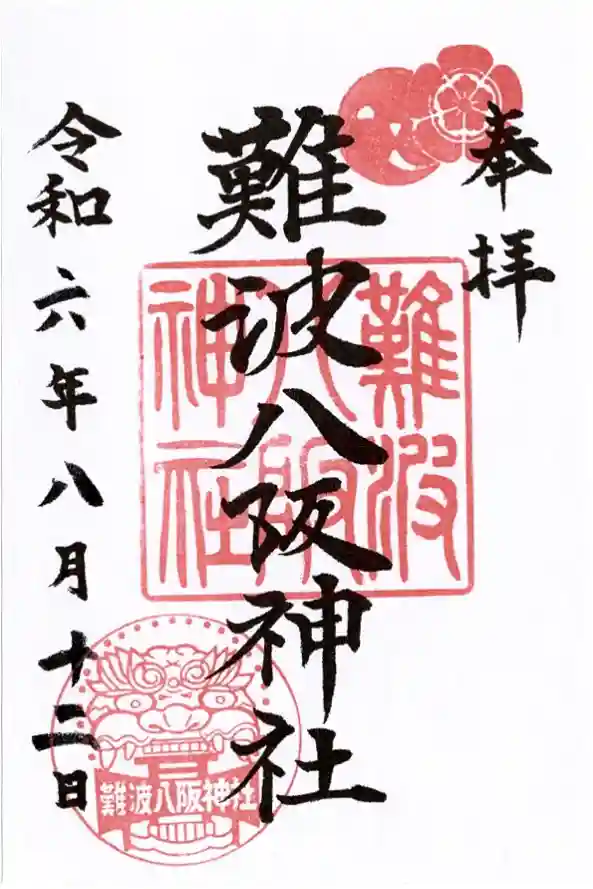 奉拝
難波八阪神社
難波
八阪
神社
令和六年八月十二日
難波八阪神社